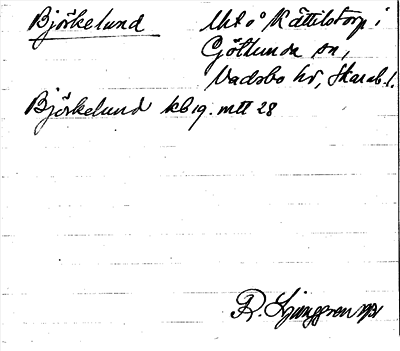 Björkelund Uht o Rättilstorp i
Götlunda sn,
Vadsbo hd, Skarab. l.
Björkelund kb 19. mtl 28
R. Ljunggren 1931